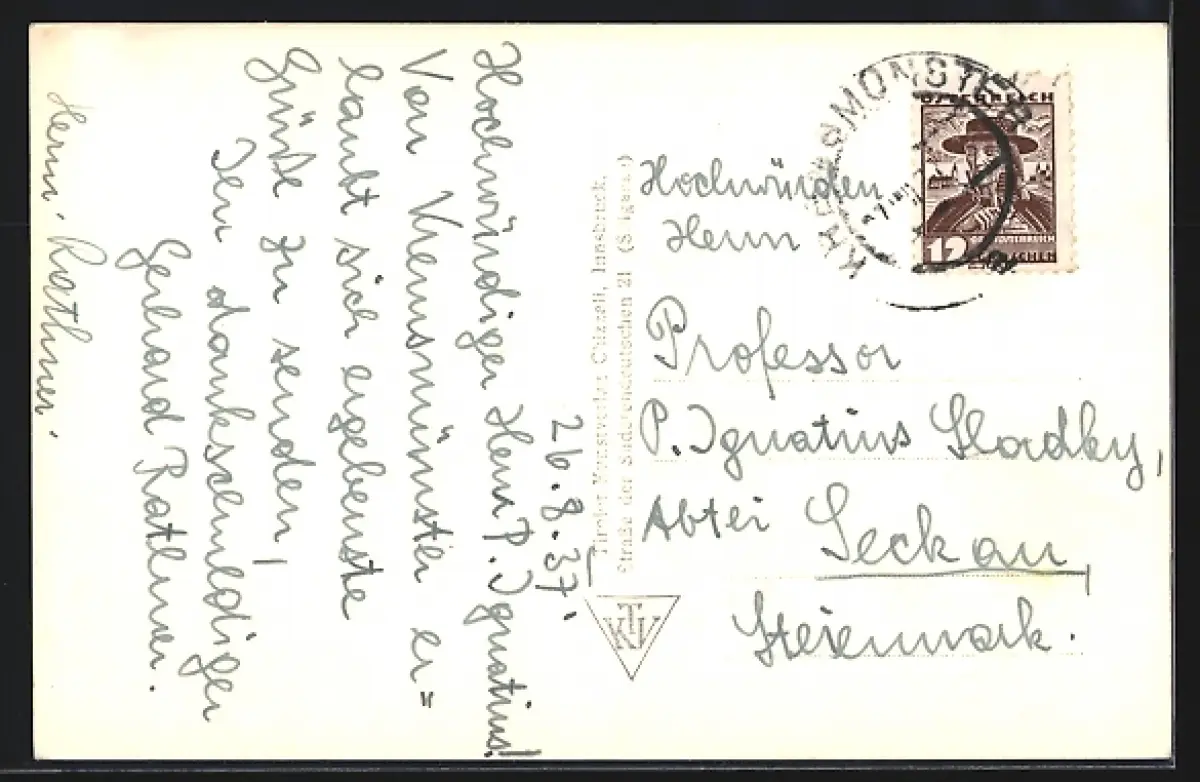 26.8.37.
Hochwürdiger Herr P. Ignatius!
Von Kremsmünster er=
laubt sich ergebenste
Grüße zu senden!
Ihr dankschuldiger
Gerhard Rathner.
Herm. Rathner.
Tiroler Kunstverlag Chizzali, Innsbruck,
Straße der Sudetendeutschen 21
TKV
KREMSMÜNSTER
ÖSTERREICH
OBERÖSTERREICH
12 GROSCHEN
Hochwürden
Herrn
Professor
P. Ignatius Sladky,
Abtei Seckau,
Steiermark.